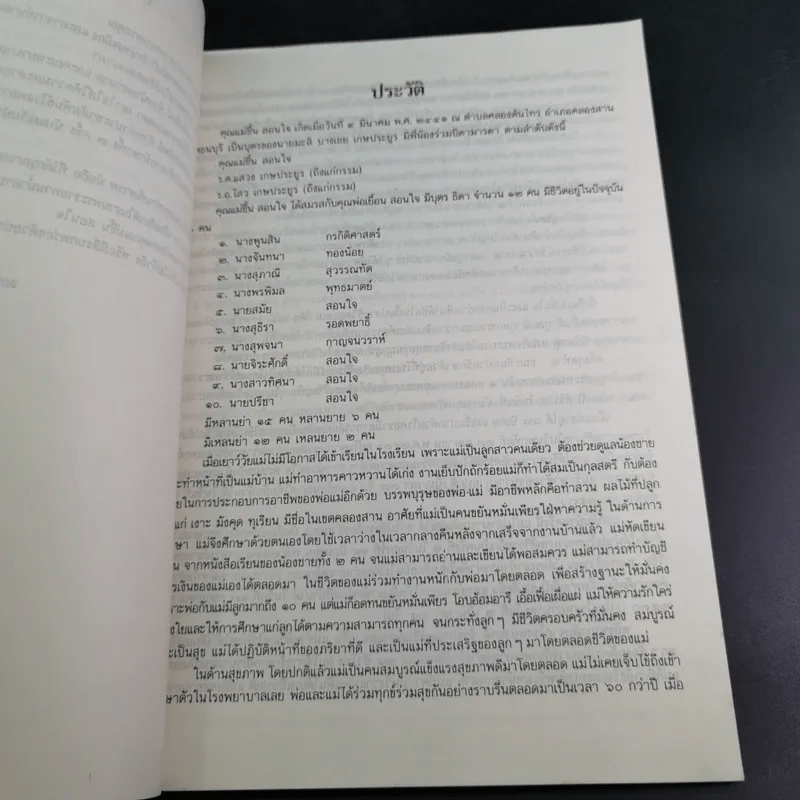 ประวัติ
คุณแม่ชื้น สอนใจ เกิดเมื่อวันที่ ๙ มีนาคม พ.ศ. ๒๔๕๑ ณ ตำบลคลองต้นไทร อำเภอคลองสาน
ธนบุรี เป็นบุตรของนายมะลิ นางเขย เกษประยูร มีพี่น้องร่วมบิดามารดา ตามลำดับดังนี้
คุณแม่ชื้น สอนใจ
ร.ต.แสวง เกษประยูร (ถึงแก่กรรม)
ร.อ.ไสว เกษประยูร (ถึงแก่กรรม)
คุณแม่ชื้น สอนใจ ได้สมรสกับคุณพ่อเยื้อน สอนใจ มีบุตร ธิดา จำนวน ๑๒ คน มีชีวิตอยู่ในปัจจุบัน
คน
๑. นางพูนสิน กรกิติศาสตร์
๒. นางจันทนา ทองน้อย
๓. นางสุภาณี สุวรรณทัต
๔. นางพรพิมล พุทธมาตย์
๕. นายสมัย สอนใจ
๖. นางสุธีรา รอดพยาธิ์
๗. นางสุพจนา กาญจนวราห์
๘. นายจิระศักดิ์ สอนใจ
๙. นางสาวทิศนา สอนใจ
๑๐. นายปรีชา สอนใจ
มีหลานย่า ๑๕ คน หลานยาย ๖ คน
มีเหลนย่า ๑๒ คน เหลนยาย ๒ คน
เมื่อเยาว์วัยแม่ไม่มีโอกาสได้เข้าเรียนในโรงเรียน เพราะแม่เป็นลูกสาวคนเดียว ต้องช่วยดูแลน้องชาย
ะทำหน้าที่เป็นแม่บ้าน แม่ทำอาหารคาวหวานได้เก่ง งานเย็บปักถักร้อยแม่ก็ทำได้สมเป็นกุลสตรี กับต้อง
ยในการประกอบการอาชีพของพ่อแม่อีกด้วย บรรพบุรุษของพ่อ-แม่ มีอาชีพหลักคือทำสวน ผลไม้ที่ปลูก
แก่ เงาะ มังคุด ทุเรียน มีชื่อในเขตคลองสาน อาศัยที่แม่เป็นคนขยันหมั่นเพียรใฝ่หาความรู้ ในด้านการ
ษา แม่จึงศึกษาด้วยตนเองโดยใช้เวลาว่างในเวลากลางคืนหลังจากเสร็จจากงานบ้านแล้ว แม่หัดเขียน
น จากหนังสือเรียนของน้องชายทั้ง ๒ คน จนแม่สามารถอ่านและเขียนได้พอสมควร แม่สามารถทำบัญชี
รเงินของแม่เองได้ตลอดมา ในชีวิตของแม่ร่วมทำงานหนักกับพ่อมาโดยตลอด เพื่อสร้างฐานะให้มั่นคง
าะพ่อกับแม่มีลูกมากถึง ๑๐ คน แต่แม่ก็อดทนขยันหมั่นเพียร โอบอ้อมอารี เอื้อเฟื้อเผื่อแผ่ แม่ให้ความรักใคร่
งใยและให้การศึกษาแก่ลูกได้ตามความสามารถทุกคน จนกระทั่งลูกๆ มีชีวิตครอบครัวที่มั่นคง สมบูรณ์
ะเป็นสุข แม่ได้ปฏิบัติหน้าที่ของภริยาที่ดี และเป็นแม่ที่ประเสริฐของลูกๆ มาโดยตลอดชีวิตของแม่
ในด้านสุขภาพ โดยปกติแล้วแม่เป็นคนสมบูรณ์แข็งแรงสุขภาพดีมาโดยตลอด แม่ไม่เคยเจ็บไข้ถึงเข้า
ษาตัวในโรงพยาบาลเลย พ่อและแม่ได้ร่วมทุกข์ร่วมสุขกันอย่างราบรื่นตลอดมาเป็นเวลา ๖๐ กว่าปี เมื่อ